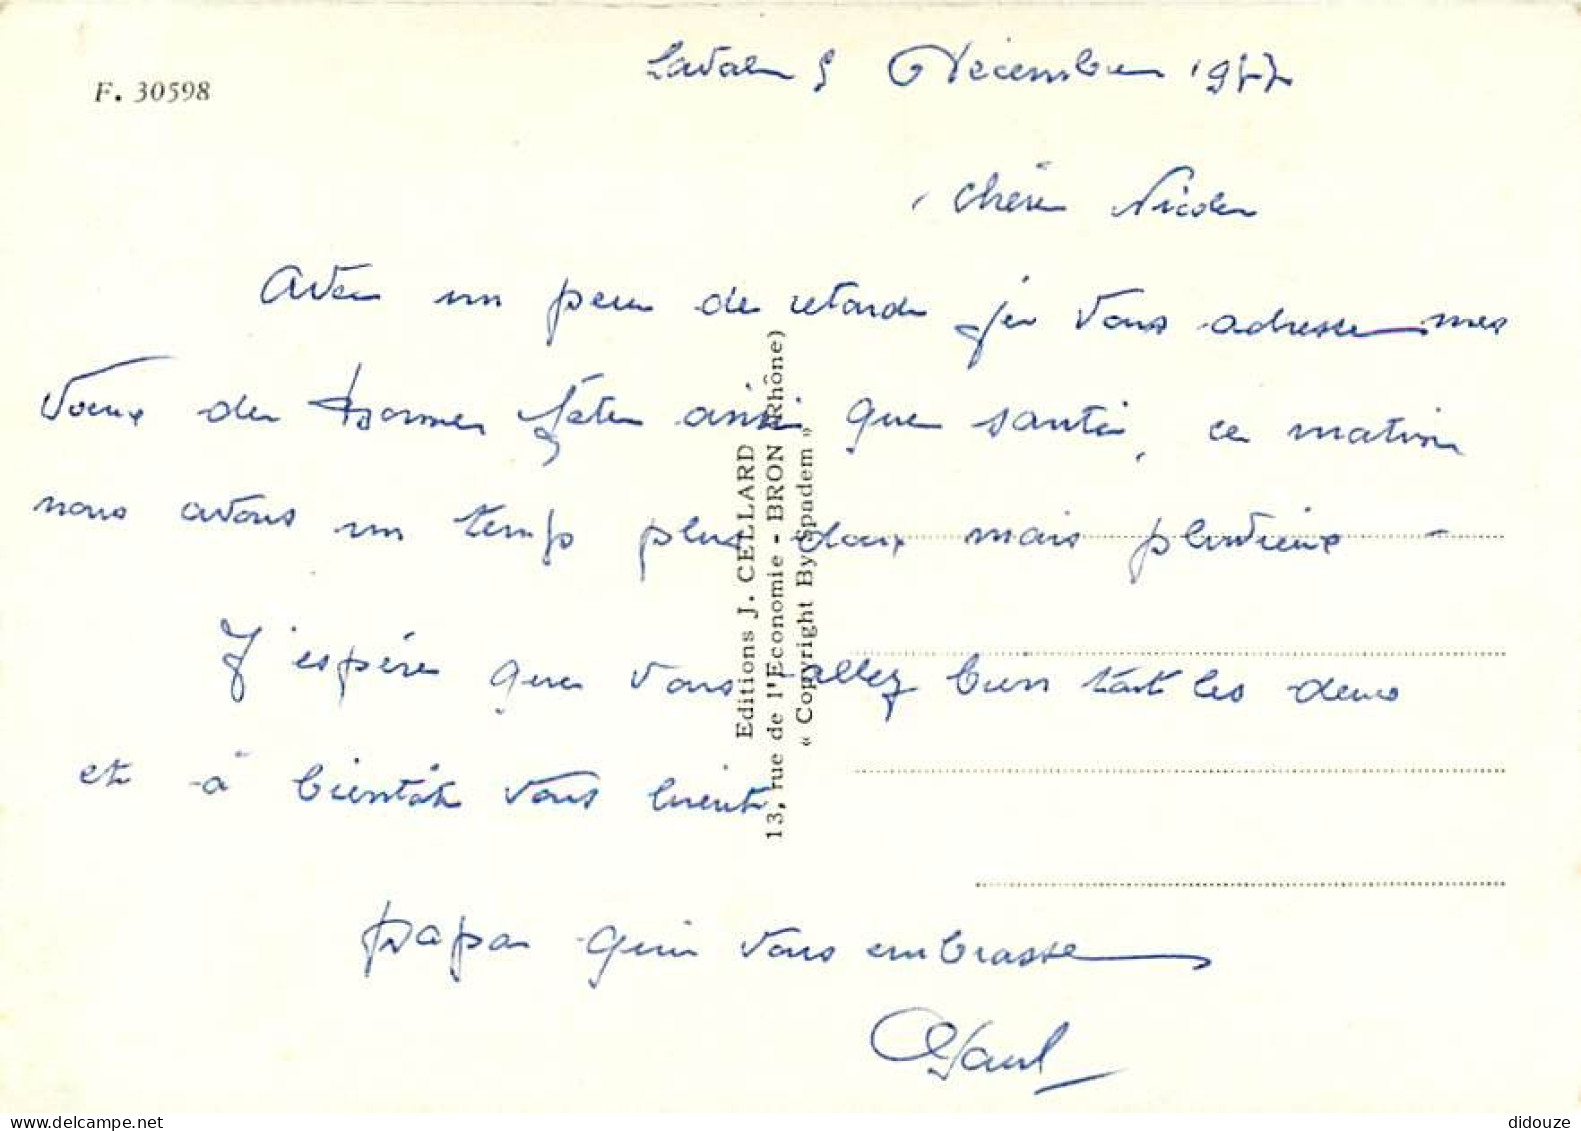 F. 30598
Laval 5 Décembre 1977
Chère Nicole
Avec un peu de retard je vous adresse mes
voeux de bonnes fêtes ainsi que santé, ce matin
nous avons un temps plus doux mais pluvieux -
J'espère que vous allez bien tout les deux
et à bientôt vous lirent
papa qui vous embrasse
Paul
Editions J. CELLARD
13, rue de l'Economie - BRON (Rhône)
« Copyright By Spadem »
didouze